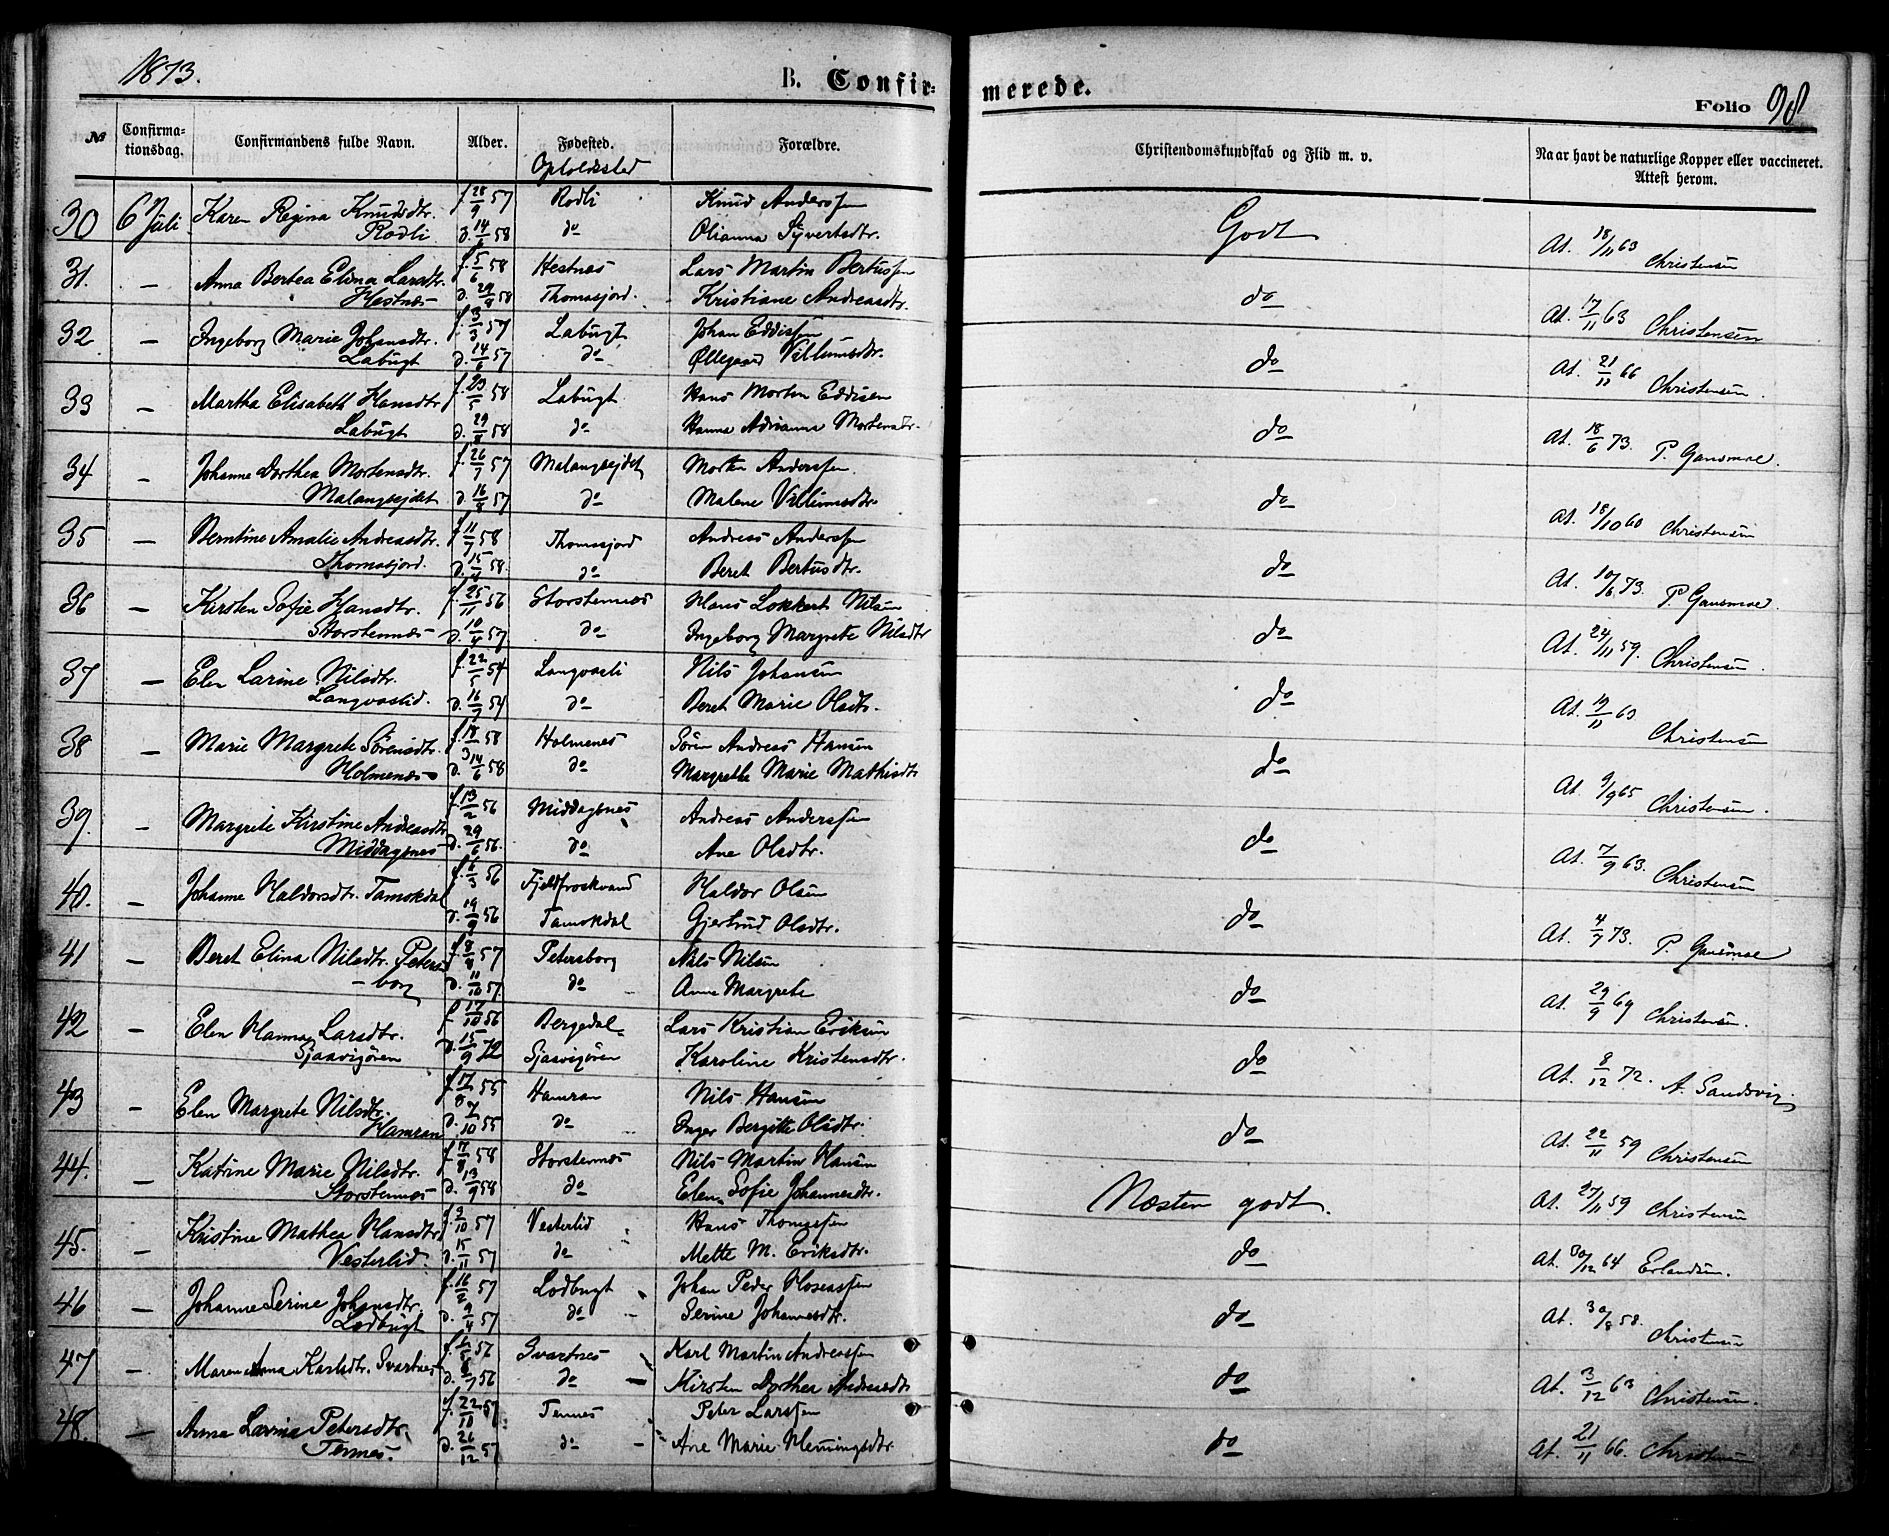 1873.
B. Confirmerede.
Folio 98
№ Confirmationsdag. Confirmandens fulde Navn. Alder. Fødested. Opholdssted Forældre. Christendomskundskab og Flid m. v. Naar havt de naturlige Kopper eller vaccineret. Attest herom.
30 6 Juli Karen Regina Knudsdtr. f. 28/9 57 Rødli Knud Anderssen Godt At. 18/11 63 Christensen
Rødli d. 14/ 58 do Olianna Syvertsdtr.
31. – Anna Bertea Elina Larsdtr. f. 5/6 58 Hestnæs Lars Martin Bertussen do At. 17/11 63 Christensen
Hestnæs d. 29/8 58 Thomasjord. Kristiane Andreasdtr.
32 – Ingeborg Marie Johansdtr. f. 3/3 57 Labugt Johan Eddissen do At. 21/11 66 Christensen
Labugt d. 14/6 57 do Ollegaard Villumsdtr.
33 – Martha Elisabeth Hansdtr f. 23/5 58 Labugt Hans Morten Eddisen do At. 18/6 73. P. Gansmoe.
Labugt d. 29/8 58 do Hanna Adrianna Mortensdtr.
34 – Johanne Dorthea Mortensdtr. f. 26/7 57 Malangseidet Morten Anderssen. do At. 18/10 60 Christensen
Malangseidet d. 16/8 57 do Malene Villumsdtr.
35 – Berntine Amalie Andreasdtr. f. 11/7 58 Thomasjord Andreas Anderssen do At. 10/6 73. P. Gansmoe.
Thomasjord. d. 15/8 58. do Beret Bertusdtr.
36 – Kirsten Sofie Hansdtr. f. 25/11 56 Storstennæs Hans Lokkert Nilsen do At. 24/11 59. Christensen
Storstennæs d. 10/4 57 do Ingeborg Margrete Nilsdtr
37 – Elen Larine Nilsdtr. f. 22/5 54 Langvasli Nils Johansen do At. 19/11 63 Christensen
Langvaslid. d. 16/7 54 do Beret Marie Olsdtr.
38 – Marie Margrete Sørensdtr. f. 18/3 58 Holmenes Søren Andreas Hansen do At. 9/9 65 Christensen.
Holmenæs d. 14/6 58 do Margrethe Marie Mathisdtr
39. – Margrete Kirstine Andreasdtr f. 13/2 56 Middagsnes Andreas Anderssen do At. 7/9 63. Christensen
Middagsnes d. 29/6 56. do Ane Olsdtr.
40. – Johanne Haldorsdtr. Tamokdal f. 6/3 56 Fjeldfroskvand Haldor Olsen do At. 4/7 73. P. Gansmoe
d. 19/9 56 Tamokdal Gjertrud Olsdtr.
41 – Beret Elina Nilsdtr. Peters f. 8/8 57 Petersborg Nils Nilsen do At. 29/9 69 Christensen.
– borg d. 11/10 57 do Anne Margrete
42 – Elen Hanna Larsdtr. f. 17/10 56 Bergedal Lars Kristian Eriksen do At. 8/12 72. A. Sandsvig
Sjaavigören d. 15/9 72 Sjaavigören Karoline Kristensdtr.
43 – Elen Margrete Nilsdtr. f. 17/8 55 Hamran Nils Hansen do At. 22/11 59 Christensen
Hamran d. 7/10 55 do Inger Bergitte Olsdtr.
44. – Katrine Marie Nilsdtr. f. 7/8 58 Storstennæs Nils Martin Hansen Næsten godt. At. 27/11 59 Christensen
Storstennæs d. 13/9 58 do Elen Sofie Johannesdtr.
45. – Kristine Mathea Hansdtr f. 2/10 57 Vesterlid Hans Thomassen do At. 30/12 64 Erlandsen.
Vesterlid. d. 15/11 57 do Mette M. Eriksdtr.
46 – Johanne Serine Johansdtr. f. 16/2 57 Lodbugt Johan Peder Hoseassen do At. 30/8 58. Christensen
Lodbugt d. 9/4 57 do Serine Johannesdtr.
47 – Maren Anna Karlsdtr. Svartnes f. 6/5 56 Svartnes Karl Martin Andreassen do At. 3/12 63 Christensen.
d. 6/7 56 do Kirsten Dorthea Andreasdtr
48. – Anna Lavina Petersdtr. f. 22/10 57 Tennes Peter Larssen do At. 21/11 66. Christensen
Tennes. d. 26/12 57 do Ane Marie Hemingsdtr.